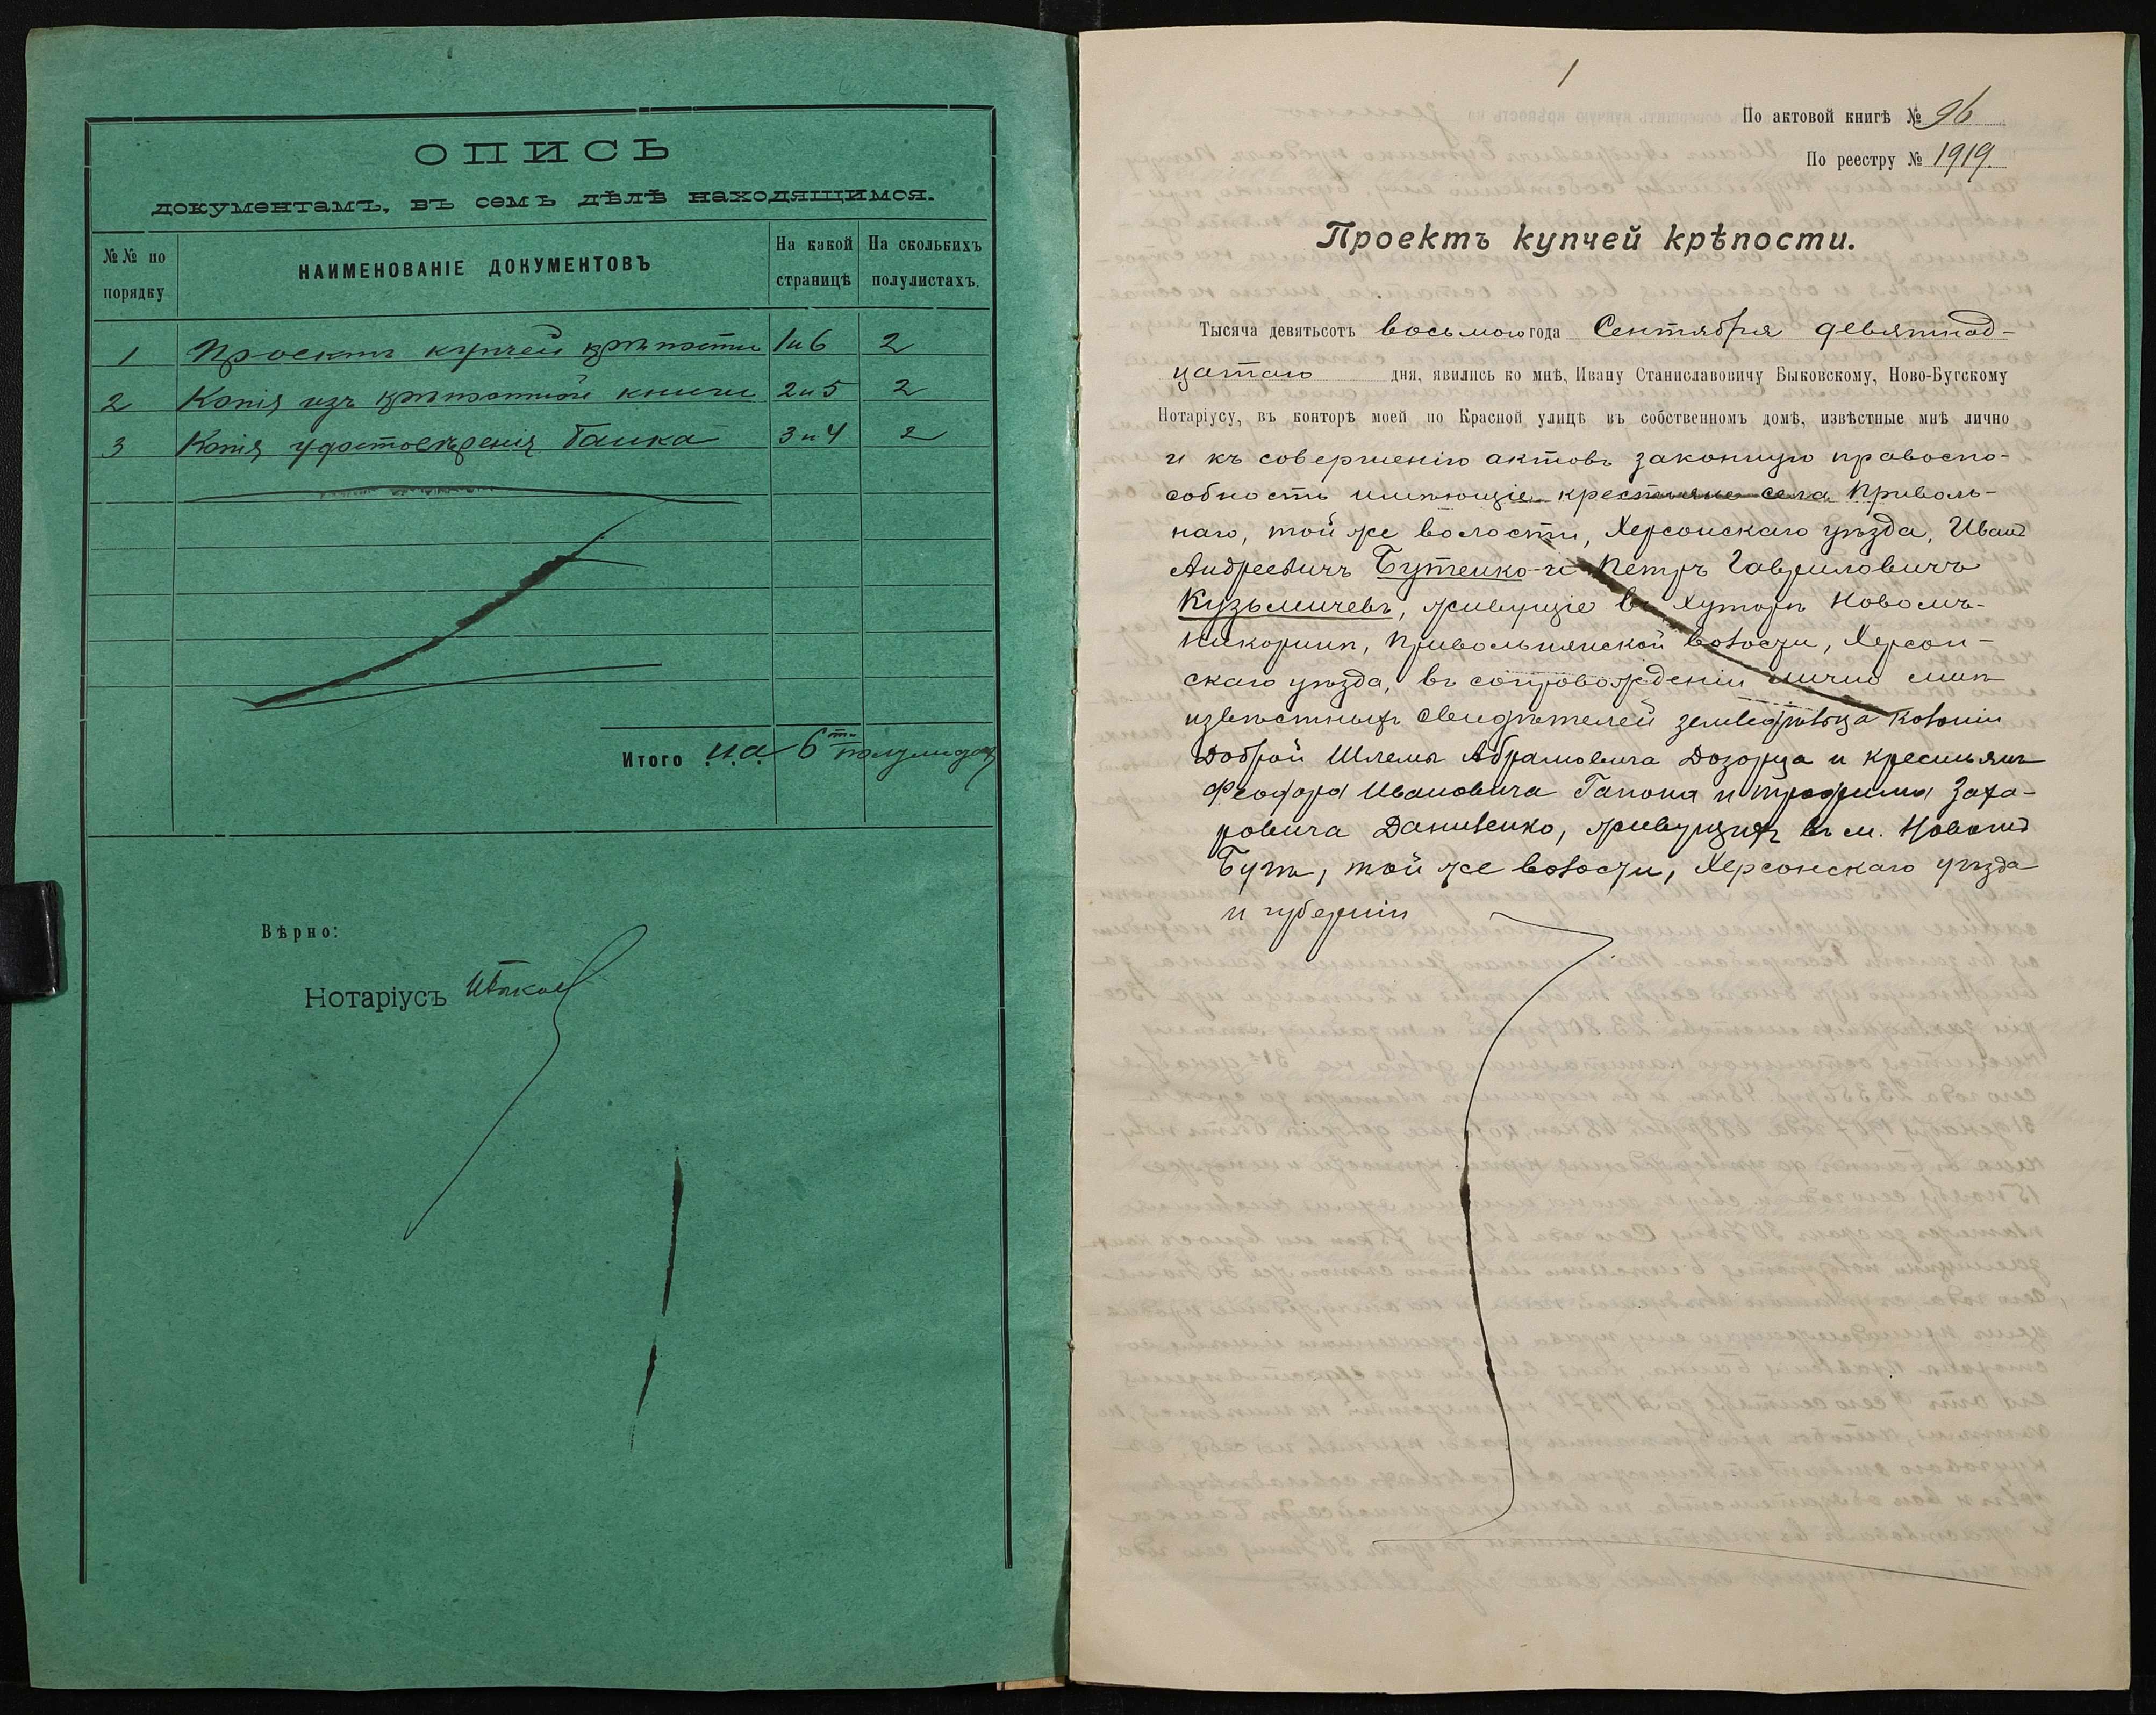 ОПИСЬ
документамъ, въ семъ дѣлѣ находящимся.
№№ по порядку
НАИМЕНОВАНІЕ ДОКУМЕНТОВЪ
На какой страницѣ
На сколькихъ полулистахъ.
1 Проектъ купчей крѣпости 1 и 6 2
2 Копія изъ крѣпостной книги 2 и 5 2
3 Копія удостовѣренія Банка 3 и 4 2
Итого на 6ти полулистах
Вѣрно:
Нотаріусъ
1
По актовой книгѣ № 96
По реестру № 1919.
Проектъ купчей крѣпости.
Тысяча девятьсотъ восьмого года Сентября девятнад-
цатаго дня, явились ко мнѣ, Ивану Станиславовичу Быковскому, Ново-Бугскому
Нотаріусу, въ конторѣ моей по Красной улицѣ въ собственномъ домѣ, извѣстные мнѣ лично
и къ совершенію актовъ законную правоспо-
собность имѣющіе крестьяне села Приволь-
наго, той же волости, Херсонскаго уѣзда, Иванъ
Андреевичъ Бутенко и Петръ Гавриловичъ
Кузьмичевъ, живущіе въ хуторѣ Новомъ-
Привольнянской волости, Херсон-
скаго уѣзда, въ сопровожденіи лично мнѣ
извѣстныхъ свидѣтелей земледѣльца колоніи
Доброй Шлемы Абрамовича Дозорца и крестьянъ
Феодора Ивановича Гапона и Трофима Заха-
ровича Даниленко, живущихъ въ м. Новомъ
Бугѣ, той же волости, Херсонскаго уѣзда
и губерніи